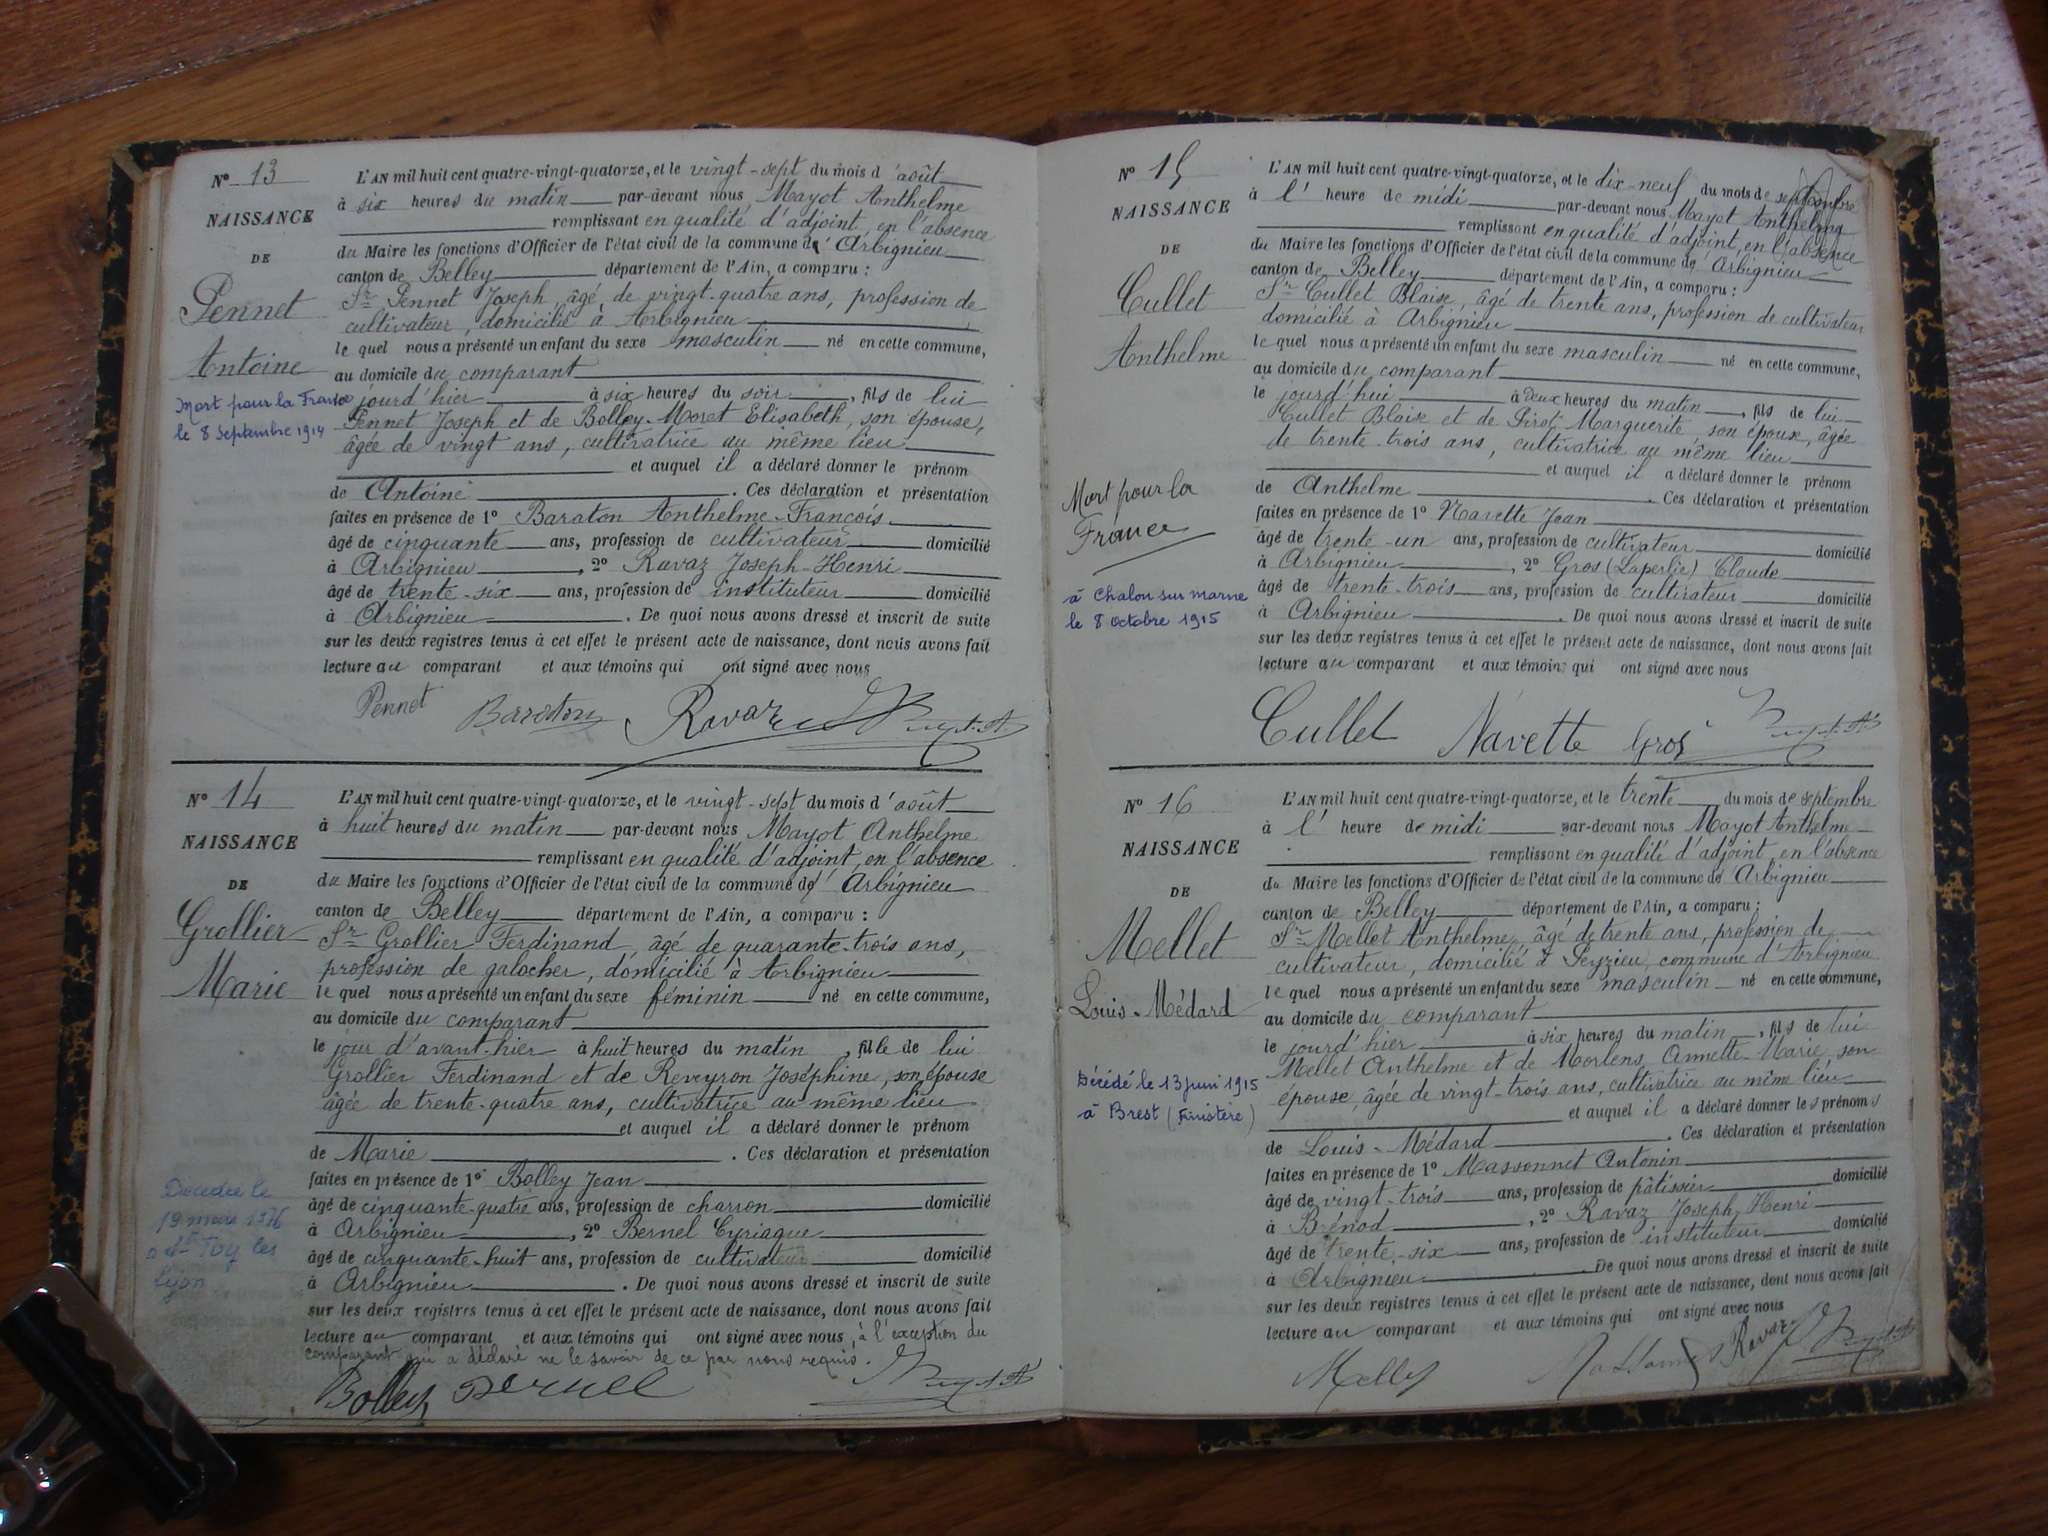 N° 13
NAISSANCE
DE
Pennet
Antoine
Mort pour la France
le 8 septembre 1914
L'AN mil huit cent quatre-vingt-quatorze, et le vingt-sept du mois d'août
à six heures du matin par-devant nous Mayot Anthelme
remplissant en qualité d'adjoint, en l'absence
du Maire les fonctions d'Officier de l'état civil de la commune d'Arbignieu
canton de Belley département de l'Ain, a comparu :
Sr Pennet Joseph, âgé de vingt-quatre ans, profession de
cultivateur, domicilié à Arbignieu
le quel nous a présenté un enfant du sexe masculin né en cette commune,
au domicile du comparant
le jourd'hier à six heures du soir, fils de lui
Pennet Joseph et de Bolley-Moret Elisabeth, son épouse,
âgée de vingt ans, cultivatrice au même lieu
et auquel il a déclaré donner le prénom
de Antoine. Ces déclaration et présentation
faites en présence de 1° Baraton Anthelme-François
âgé de cinquante ans, profession de cultivateur domicilié
à Arbignieu, 2° Ravaz Joseph-Henri
âgé de trente-six ans, profession de instituteur domicilié
à Arbignieu. De quoi nous avons dressé et inscrit de suite
sur les deux registres tenus à cet effet le présent acte de naissance, dont nous avons fait
lecture au comparant et aux témoins qui ont signé avec nous
Pennet Baraton Ravaz
N° 14
NAISSANCE
DE
Grollier
Marie
Décédée le
19 mars 1976
à Ste Foy les
Lyon
L'AN mil huit cent quatre-vingt-quatorze, et le vingt-sept du mois d'août
à huit heures du matin par-devant nous Mayot Anthelme
remplissant en qualité d'adjoint, en l'absence
du Maire les fonctions d'Officier de l'état civil de la commune d'Arbignieu
canton de Belley département de l'Ain, a comparu :
Sr Grollier Ferdinand, âgé de quarante-trois ans,
profession de galocher, domicilié à Arbignieu
le quel nous a présenté un enfant du sexe féminin né en cette commune,
au domicile du comparant
le jour d'avant-hier à huit heures du matin, fille de lui
Grollier Ferdinand et de Reveyron Joséphine, son épouse
âgée de trente-quatre ans, cultivatrice au même lieu
et auquel il a déclaré donner le prénom
de Marie. Ces déclaration et présentation
faites en présence de 1° Bolley Jean
âgé de cinquante-quatre ans, profession de charron domicilié
à Arbignieu, 2° Bernel Cyriaque
âgé de cinquante-huit ans, profession de cultivateur domicilié
à Arbignieu. De quoi nous avons dressé et inscrit de suite
sur les deux registres tenus à cet effet le présent acte de naissance, dont nous avons fait
lecture au comparant et aux témoins qui ont signé avec nous, à l'exception du
comparant qui a déclaré ne le savoir de ce par nous requis.
Bolley Bernel
N° 15
NAISSANCE
DE
Cullet
Anthelme
Mort pour la
France
à Chalon sur marne
le 8 octobre 1915
L'AN mil huit cent quatre-vingt-quatorze, et le dix-neuf du mois de septembre
à l'heure de midi par-devant nous Mayot Anthelme
remplissant en qualité d'adjoint, en l'absence
du Maire les fonctions d'Officier de l'état civil de la commune de Arbignieu
canton de Belley département de l'Ain, a comparu :
Sr Cullet Blaise, âgé de trente ans, profession de cultivateur
domicilié à Arbignieu
le quel nous a présenté un enfant du sexe masculin né en cette commune,
au domicile du comparant
le jourd'hui à deux heures du matin, fils de lui
Cullet Blaise et de Pirot Marguerite, son épouse, âgée
de trente-trois ans, cultivatrice au même lieu
et auquel il a déclaré donner le prénom
de Anthelme. Ces déclaration et présentation
faites en présence de 1° Navette Jean
âgé de trente-un ans, profession de cultivateur domicilié
à Arbignieu, 2° Gros (Laperlie) Claude
âgé de trente-trois ans, profession de cultivateur domicilié
à Arbignieu. De quoi nous avons dressé et inscrit de suite
sur les deux registres tenus à cet effet le présent acte de naissance, dont nous avons fait
lecture au comparant et aux témoins qui ont signé avec nous
Cullet Navette Gros
N° 16
NAISSANCE
DE
Mellet
Louis-Médard
Décédé le 13 juin 1915
à Brest (Finistère)
L'AN mil huit cent quatre-vingt-quatorze, et le trente du mois de septembre
à l'heure de midi par-devant nous Mayot Anthelme
remplissant en qualité d'adjoint en l'absence
du Maire les fonctions d'Officier de l'état civil de la commune de Arbignieu
canton de Belley département de l'Ain, a comparu :
Sr Mellet Anthelme, âgé de trente ans, profession de
cultivateur, domicilié à Peyzieu, commune d'Arbignieu
le quel nous a présenté un enfant du sexe masculin né en cette commune,
au domicile du comparant
le jourd'hier à six heures du matin, fils de lui
Mellet Anthelme et de Morlens Annette-Marie son
épouse, âgée de vingt-trois ans, cultivatrice au même lieu
et auquel il a déclaré donner les prénoms
de Louis-Médard. Ces déclaration et présentation
faites en présence de 1° Massonnet Antonin
âgé de vingt-trois ans, profession de pâtissier domicilié
à Brénod, 2° Ravaz Joseph-Henri
âgé de trente-six ans, profession de instituteur domicilié
à Arbignieu. De quoi nous avons dressé et inscrit de suite
sur les deux registres tenus à cet effet le présent acte de naissance, dont nous avons fait
lecture au comparant et aux témoins qui ont signé avec nous
Ravaz